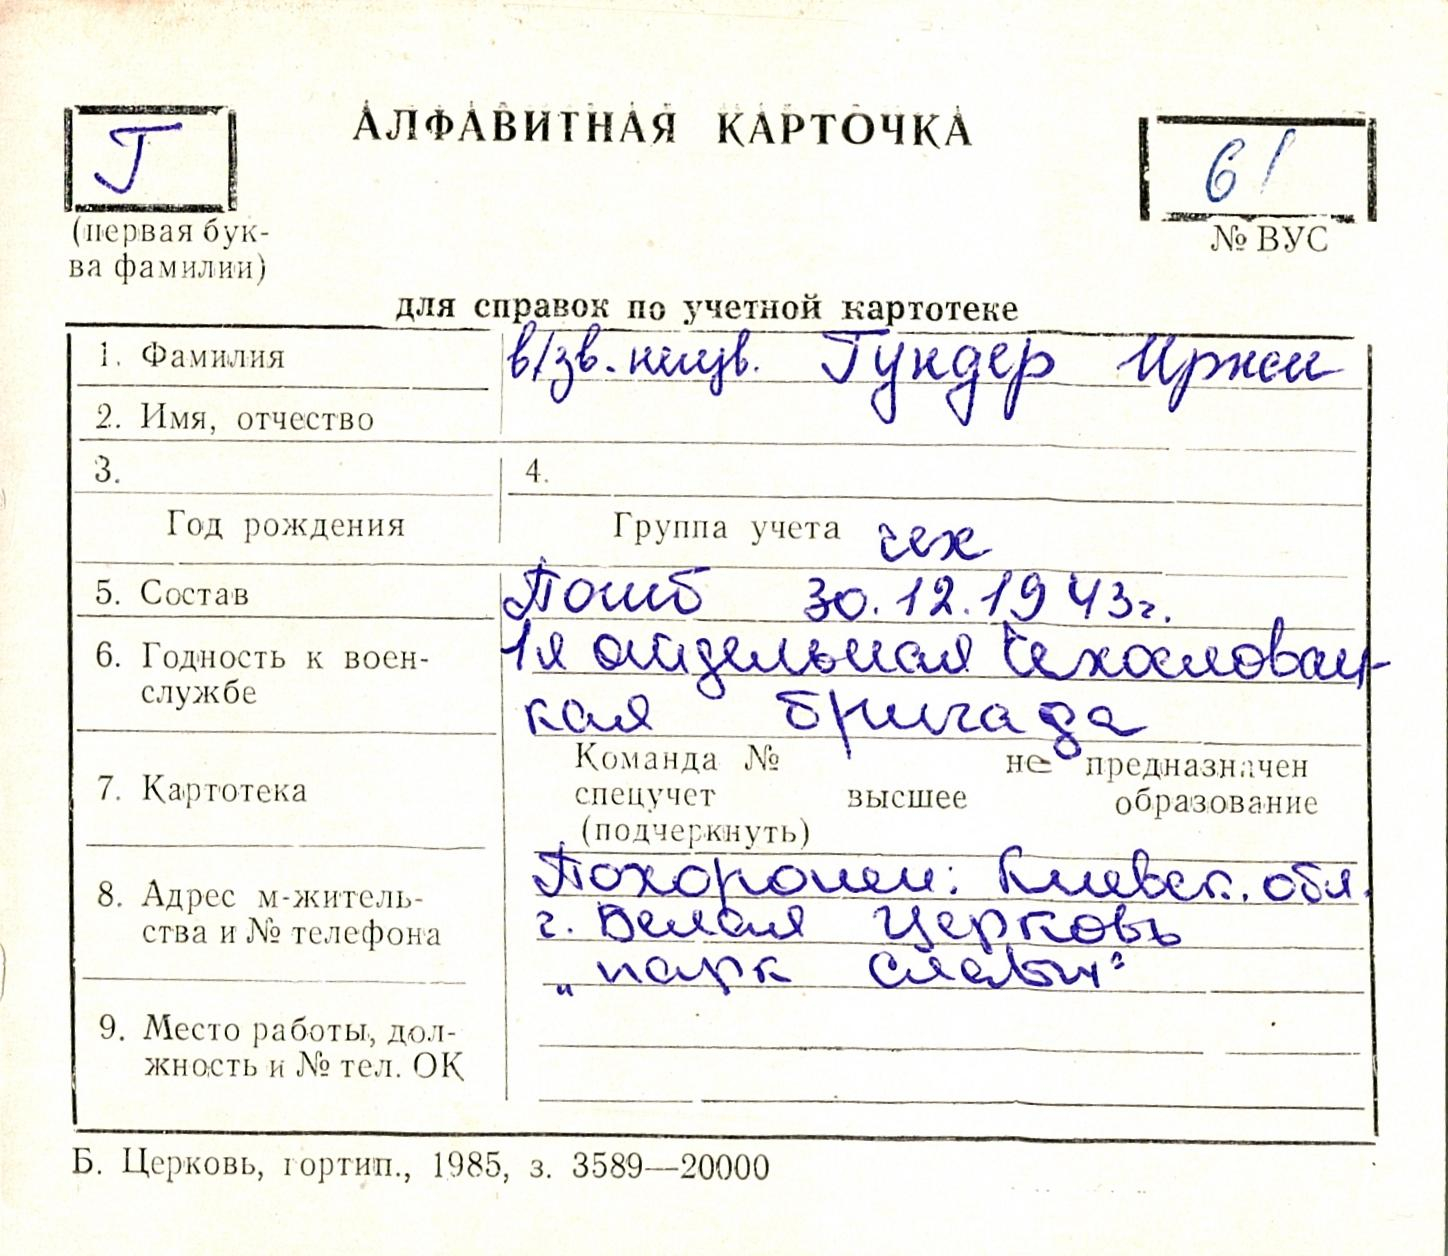 Г
АЛФАВИТНАЯ КАРТОЧКА
61
(первая бук-
ва фамилии)
№ ВУС
для справок по учетной картотеке
1. Фамилия
в/зв. неизв. Гундер Иржи
2. Имя, отчество
3.
4.
Год рождения
Группа учета чех
5. Состав
Погиб 30.12.1943г.
6. Годность к воен-
службе
1я отдельная Чехословац-
кая бригада
7. Картотека
Команда № не предназначен
спецучет высшее образование
(подчеркнуть)
8. Адрес м-житель-
ства и № телефона
Похоронен: Киевск. обл.
г. Белая Церковь
„парк славы"
9. Место работы, дол-
жность и № тел. ОК
Б. Церковь, гортип., 1985, з. 3589—20000